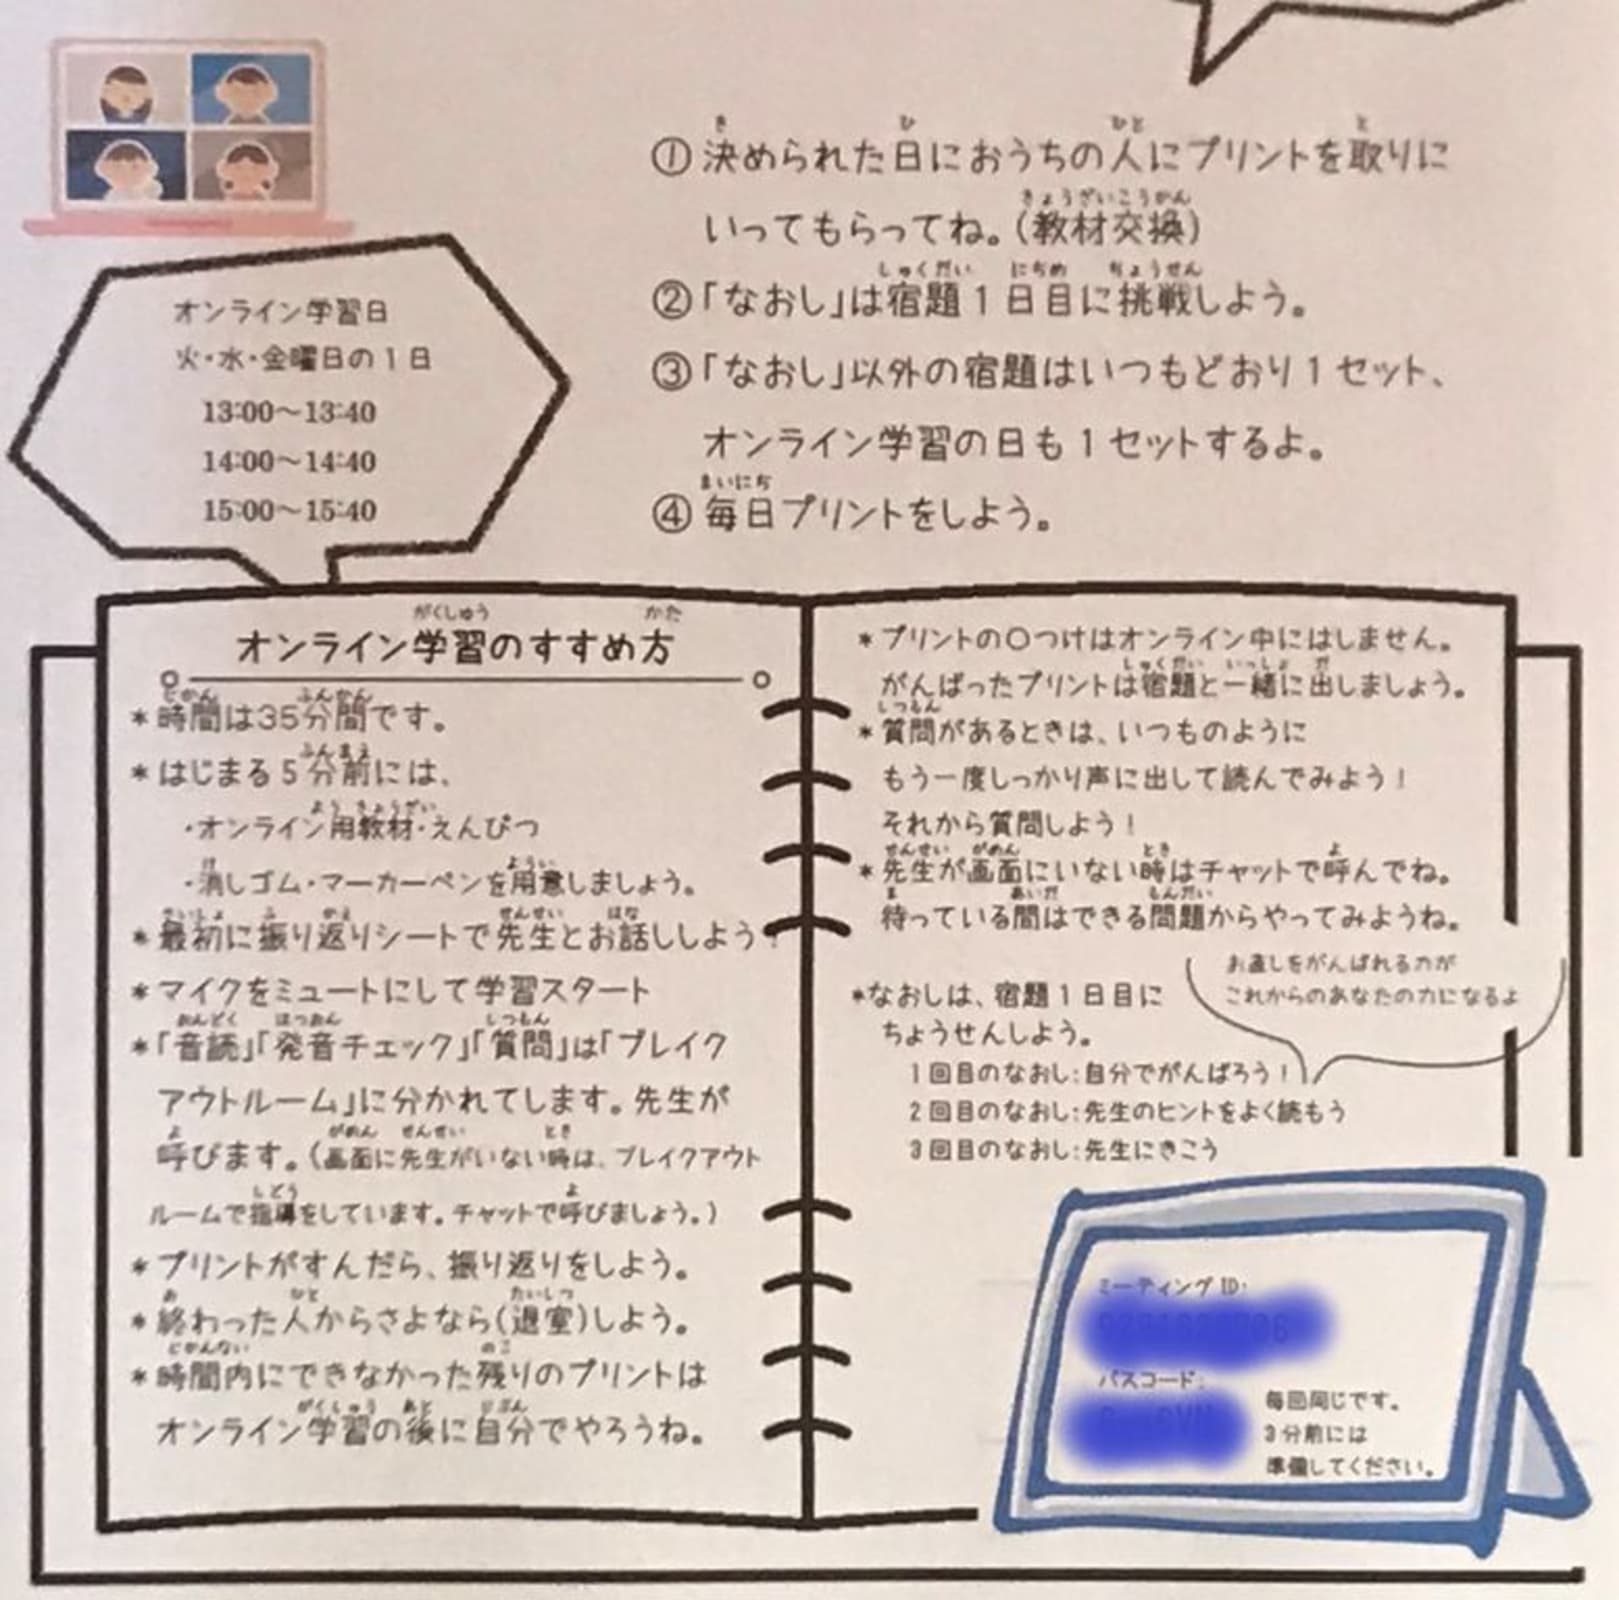 ① 決められた日におうちの人にプリントを取りに
いってもらってね。(教材交換)
②「なおし」は宿題1日目に挑戦しよう。
③「なおし」以外の宿題はいつもどおり1セット、
オンライン学習の日も1セットするよ。
④ 毎日プリントをしよう。
オンライン学習日
火・水・金曜日の1日
13:00~13:40
14:00~14:40
15:00~15:40
オンライン学習のすすめ方
*時間は35分間です。
*はじまる5分前には、
・オンライン用教材・えんぴつ
・消しゴム・マーカーペンを用意しましょう。
*最初に振り返りシートで先生とお話ししよう!
*マイクをミュートにして学習スタート
*「音読」「発音チェック」「質問」は「ブレイク
アウトルーム」に分かれてします。先生が
呼びます。(画面に先生がいない時は、ブレイクアウト
ルームで指導をしています。チャットで呼びましょう。)
*プリントがすんだら、振り返りをしよう。
*終わった人からさよなら(退室)しよう。
*時間内にできなかった残りのプリントは
オンライン学習の後に自分でやろうね。
*プリントの〇つけはオンライン中にはしません。
がんばったプリントは宿題と一緒に出しましょう。
*質問があるときは、いつものように
もう一度しっかり声に出して読んでみよう!
それから質問しよう!
*先生が画面にいない時はチャットで呼んでね。
待っている間はできる問題からやってみようね。
お直しをがんばれる力が
これからのあなたの力になるよ
*なおしは、宿題1日目に
ちょうせんしよう。
1回目のなおし:自分でがんばろう!
2回目のなおし:先生のヒントをよく読もう
3回目のなおし:先生にきこう
ミーティングID:
パスコード:
毎回同じです。
3分前には
準備してください。